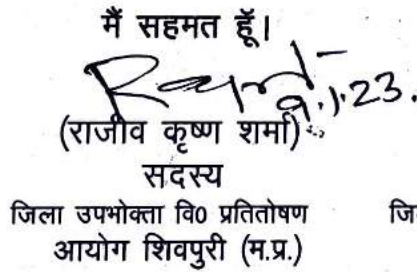 मैं सहमत हूॅं।
9.1.23.
(राजीव कृष्ण शर्मा)
सदस्य
जिला उपभोक्ता वि0 प्रतितोषण
आयोग शिवपुरी (म.प्र.)